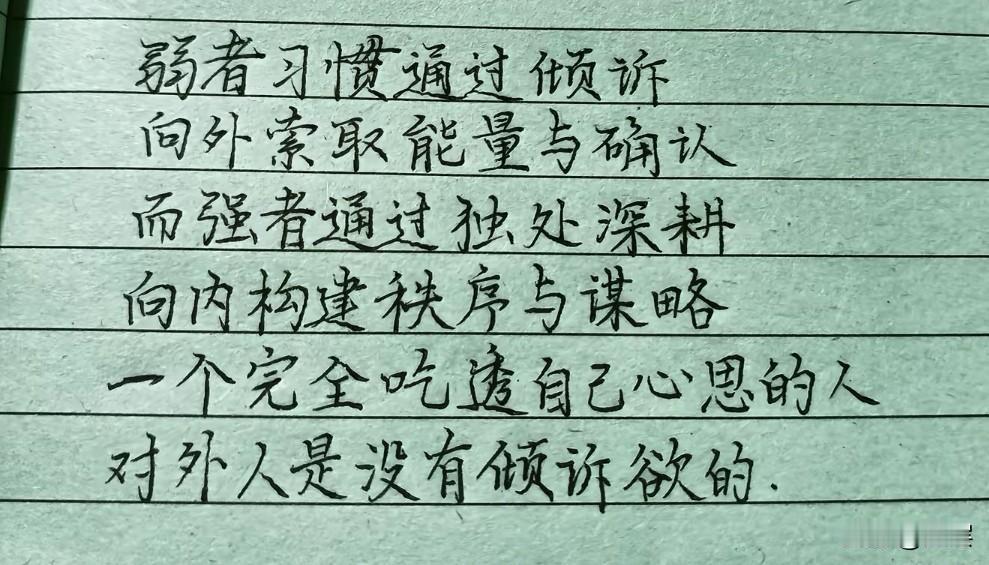 弱者习惯通过倾诉
向外索取能量与确认
而强者通过独处深耕
向内构建秩序与谋略
一个完全吃透自己心思的人
对外人是没有倾诉欲的.